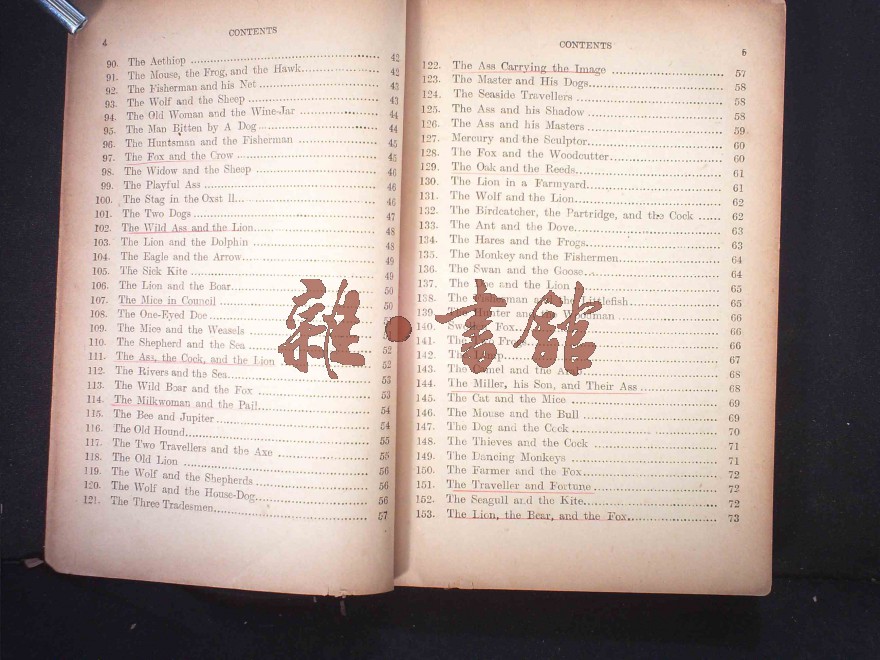 4
CONTENTS
90. The Aethiop 42
91. The Mouse, the Frog, and the Hawk 42
92. The Fisherman and his Net 43
93. The Wolf and the Sheep 43
94. The Old Woman and the Wine-Jar 44
95. The Man Bitten by A Dog 44
96. The Huntsman and the Fisherman 45
97. The Fox and the Crow 45
98. The Widow and the Sheep 46
99. The Playful Ass 46
100. The Stag in the Oxst ll 46
101. The Two Dogs 47
102. The Wild Ass and the Lion 48
103. The Lion and the Dolphin 48
104. The Eagle and the Arrow 49
105. The Sick Kite 49
106. The Lion and the Boar 50
107. The Mice in Council 50
108. The One-Eyed Doe
109. The Mice and the Weasels
110. The Shepherd and the Sea 52
111. The Ass, the Cock, and the Lion 52
112. The Rivers and the Sea 53
113. The Wild Boar and the Fox 53
114. The Milkwoman and the Pail 54
115. The Bee and Jupiter 54
116. The Old Hound 55
117. The Two Travellers and the Axe 55
118. The Old Lion 56
119. The Wolf and the Shepherds 56
120. The Wolf and the House-Dog 56
121. The Three Tradesmen 57
CONTENTS
5
122. The Ass Carrying the Image 57
123. The Master and His Dogs 58
124. The Seaside Travellers 58
125. The Ass and his Shadow 58
126. The Ass and his Masters 59
127. Mercury and the Sculptor 60
128. The Fox and the Woodcutter 60
129. The Oak and the Reeds 61
130. The Lion in a Farmyard 61
131. The Wolf and the Lion 62
132. The Birdcatcher, the Partridge, and the Cock 62
133. The Ant and the Dove 63
134. The Hares and the Frogs 63
135. The Monkey and the Fishermen 64
136. The Swan and the Goose 64
137. The Doe and the Lion 65
138. The Fisherman and the Littlefish 65
139. The Hunter and the Woodman 66
140. Fox 66
141. The 66
142. The 67
143. The Camel and the 68
144. The Miller, his Son, and Their Ass 68
145. The Cat and the Mice 69
146. The Mouse and the Bull 69
147. The Dog and the Cock 70
148. The Thieves and the Cock 71
149. The Dancing Monkeys 71
150. The Farmer and the Fox 72
151. The Traveller and Fortune 72
152. The Seagull and the Kite 72
153. The Lion, the Bear, and the Fox 73
雜·書館